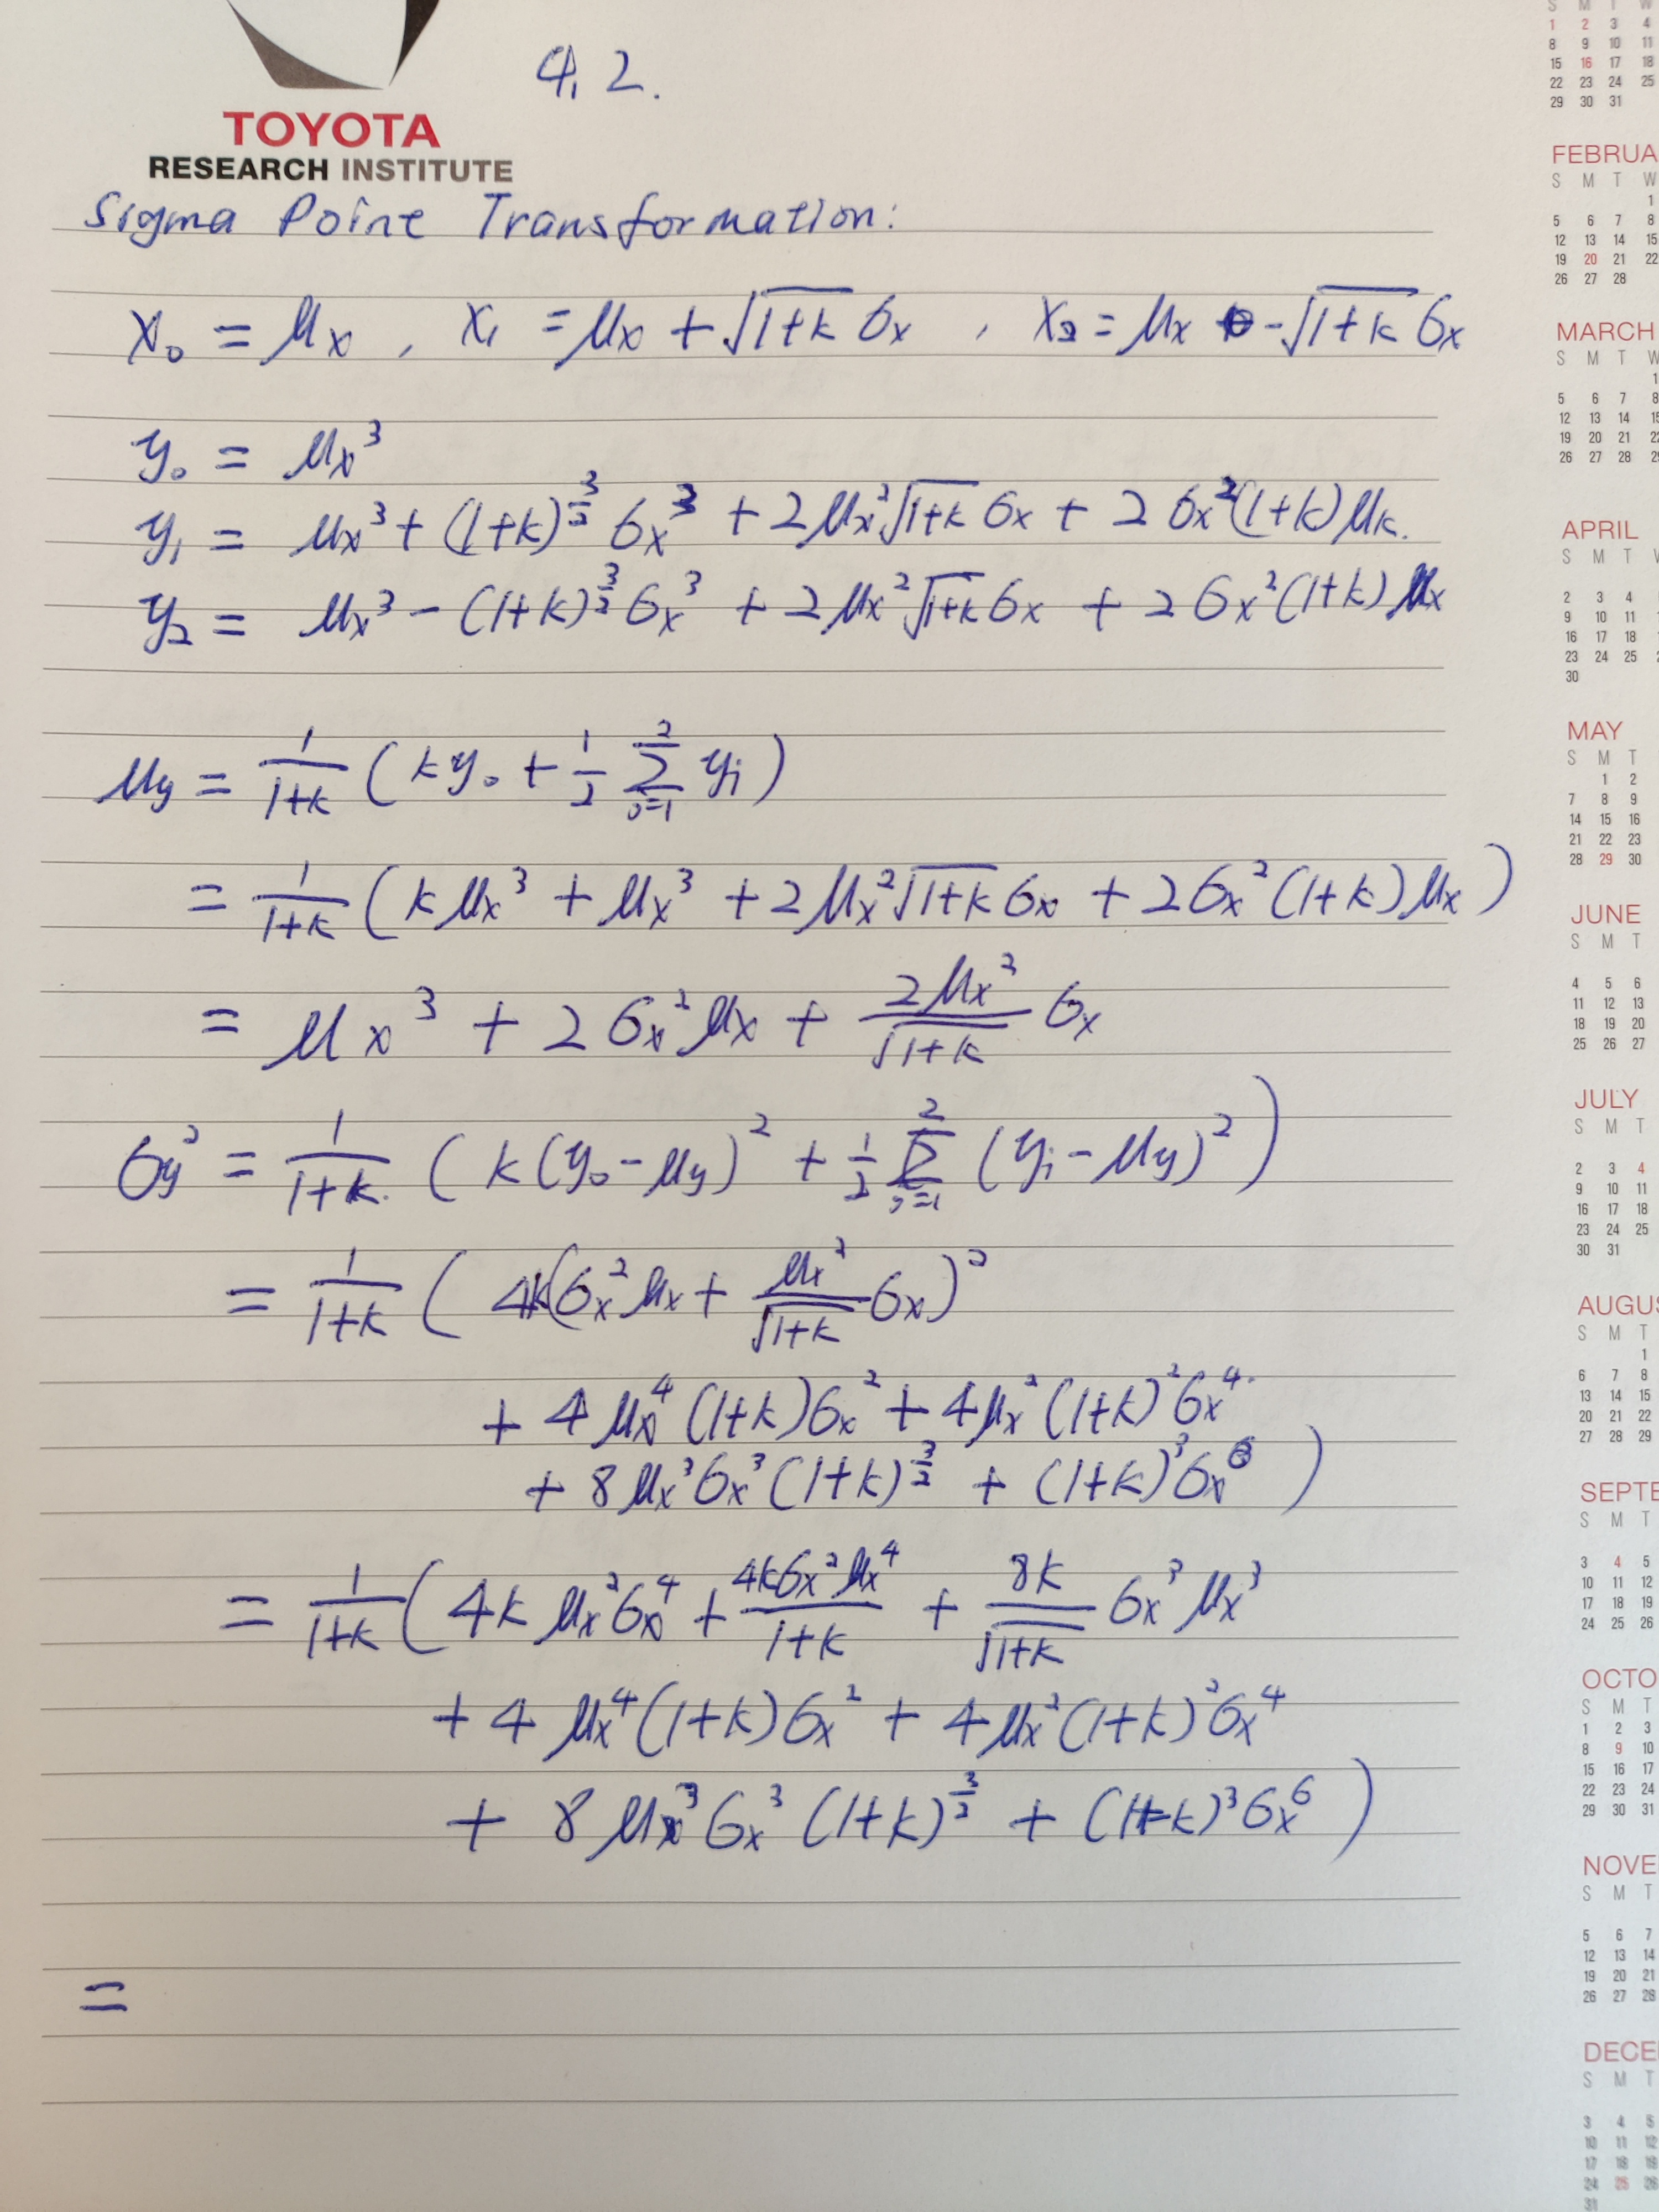 4.2.
TOYOTA
RESEARCH INSTITUTE
Sigma Point Transformation:
x₀ = μx , x₁ = μx + √(1+k) σx , x₂ = μx - √(1+k) σx
y₀ = μx³
y₁ = μx³ + (1+k)^(3/2) σx³ + 2μx²√(1+k) σx + 2σx²(1+k)μk.
y₂ = μx³ - (1+k)^(3/2) σx³ + 2μx²√(1+k) σx + 2σx²(1+k)μx
μy = 1/(1+k) (ky₀ + 1/2 Σ_{i=1}^{2} yi)
= 1/(1+k) (kμx³ + μx³ + 2μx²√(1+k) σx + 2σx²(1+k)μx)
= μx³ + 2σx²μx + 2μx²/√(1+k) σx
σy² = 1/(1+k) (k(y₀-μy)² + 1/2 Σ_{i=1}^{2} (yi-μy)²)
= 1/(1+k) (4k(σx²μx + μx²/√(1+k) σx)²
+ 4μx⁴(1+k)σx² + 4μx²(1+k)²σx⁴
+ 8μx³σx³(1+k)^(3/2) + (1+k)³σx⁶)
= 1/(1+k) (4kμx²σx⁴ + 4kσx²μx⁴/(1+k) + 8k/√(1+k) σx³μx³
+ 4μx⁴(1+k)σx² + 4μx²(1+k)²σx⁴
+ 8μx³σx³(1+k)^(3/2) + (1+k)³σx⁶)
=
S M T W
1 2 3 4
8 9 10 11
15 16 17 18
22 23 24 25
29 30 31
FEBRUA
S M T W
1
5 6 7 8
12 13 14 15
19 20 21 22
26 27 28
MARCH
S M T W
1
5 6 7 8
12 13 14 15
19 20 21 22
26 27 28 29
APRIL
S M T
2 3 4
9 10 11
16 17 18
23 24 25
30
MAY
S M T
1 2
7 8 9
14 15 16
21 22 23
28 29 30
JUNE
S M T
4 5 6
11 12 13
18 19 20
25 26 27
JULY
S M T
2 3 4
9 10 11
16 17 18
23 24 25
30 31
AUGUS
S M T
1
6 7 8
13 14 15
20 21 22
27 28 29
SEPTE
S M T
3 4 5
10 11 12
17 18 19
24 25 26
OCTO
S M T
1 2 3
8 9 10
15 16 17
22 23 24
29 30 31
NOVE
S M T
5 6 7
12 13 14
19 20 21
26 27 28
DECE
S M T
3 4 5
10 11 12
17 18 19
24 25 26
31